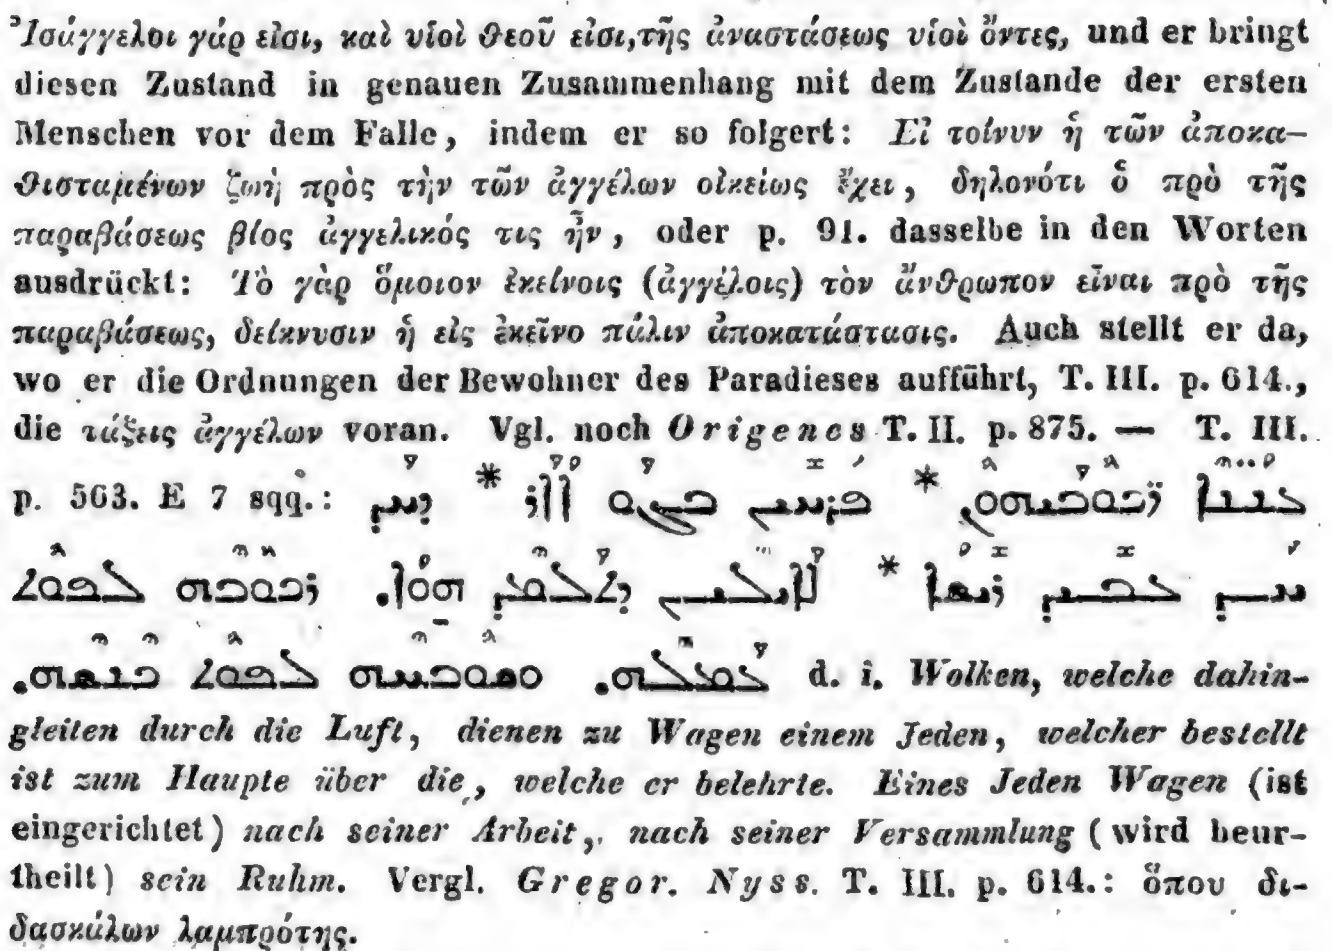 Ἰσάγγελοι γάρ εἰσι, καὶ υἱοὶ θεοῦ εἰσι,τῆς ἀναστάσεως υἱοὶ ὄντες, und er bringt
diesen Zustand in genauen Zusammenhang mit dem Zustande der ersten
Menschen vor dem Falle, indem er so folgert: Εἰ τοίνυν ἡ τῶν ἀποκα-
θισταμένων ζωὴ πρὸς τὴν τῶν ἀγγέλων οἰκείως ἔχει, δηλονότι ὁ πρὸ τῆς
παραβάσεως βίος ἀγγελικός τις ἦν, oder p. 91. dasselbe in den Worten
ausdrückt: Τὸ γὰρ ὅμοιον ἐκείνοις (ἀγγέλοις) τὸν ἄνθρωπον εἶναι πρὸ τῆς
παραβάσεως, δείκνυσιν ἡ εἰς ἐκεῖνο πάλιν ἀποκατάστασις. Auch stellt er da,
wo er die Ordnungen der Bewohner des Paradieses aufführt, T. III. p. 614.,
die τάξεις ἀγγέλων voran. Vgl. noch Origenes T. II. p. 875. — T. III.
p. 503. E 7 sqq.: ܥܢܢܐ ܪ̈ܟܘܒܝܗܘܢ * ܦܪܚܝܢ ܒܓܘ ܐܐܪ * ܕܚܕ
ܚܕ ܥܒܝܕ ܪܝܫܐ * ܠܐܝܠܝܢ ܕܬܠܡܕ ܗܘܐ. ܪܟܘܒܗ ܠܦܘܬ
ܥܡܠܗ. ܘܫܘܒܚܗ ܠܦܘܬ ܟܢܫܗ. d. i. Wolken, welche dahin-
gleiten durch die Luft, dienen zu Wagen einem Jeden, welcher bestellt
ist zum Haupte über die, welche er belehrte. Eines Jeden Wagen (ist
eingerichtet) nach seiner Arbeit, nach seiner Versammlung (wird beur-
theilt) sein Ruhm. Vergl. Gregor. Nyss. T. III. p. 614.: ὅπου δι-
δασκάλων λαμπρότης.